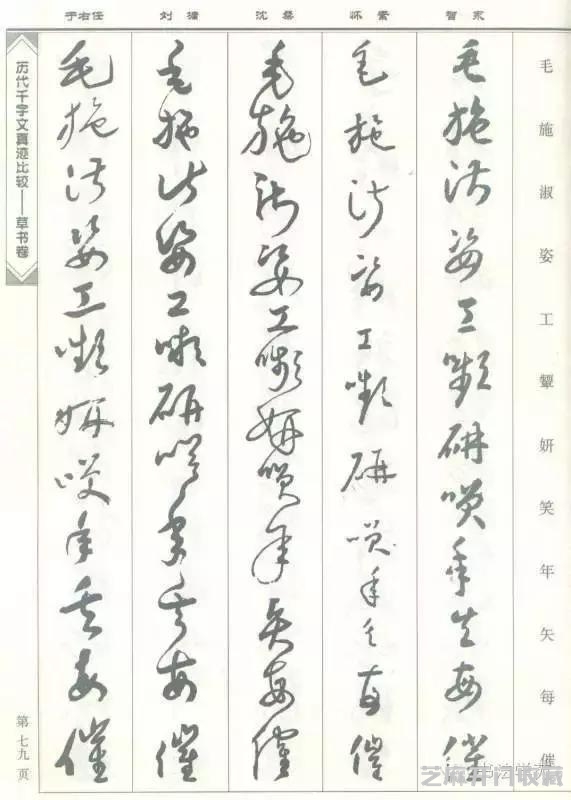 毛施淑姿工颦妍笑年矢每催
智永
毛施淑姿工嚬研笑年矢每催
怀素
毛施淑姿工嚬研笑年矢每催
沈粲
毛施淑姿工嚬妍笑年矢每催
刘墉
毛施淑姿工嚬研笑年矢每催
于右任
毛施淑姿工嚬妍笑年矢每催
历代千字文真迹比较——草书卷
第七九页
芝麻开门收藏